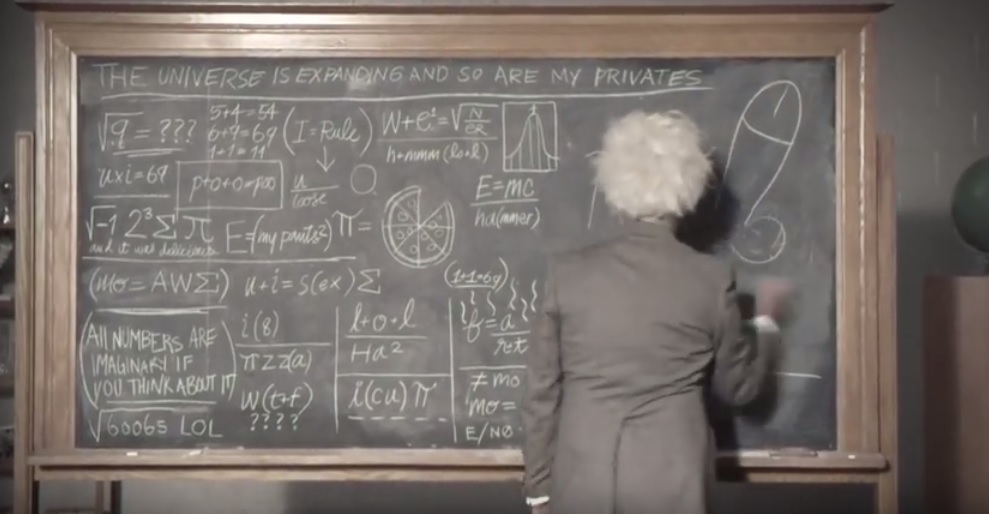 THE UNIVERSE IS EXPANDING AND SO ARE MY PRIVATES
√9 = ???
5+4=54
6+9=69
1+1=11
(I=Rule)
W+e²=√N/ER
h+mmm (lo+l)
uxi=69
p+o+o=poo
u/loose
E=MC/ha(mmer)
√-1 2³ Σ π
and it was delicious
E=(my pants²)
π=
(Mo=AWΣ)
u+i=s(ex)Σ
(1+1=69)
ALL NUMBERS ARE
IMAGINARY IF
YOU THINK ABOUT IT
i(8)
πzz(a)
W(t+f)
????
l+o+l
Ha²
i(cu)π
f=a/ret
≠ mo
mo=
E/NO
√60065 LOL